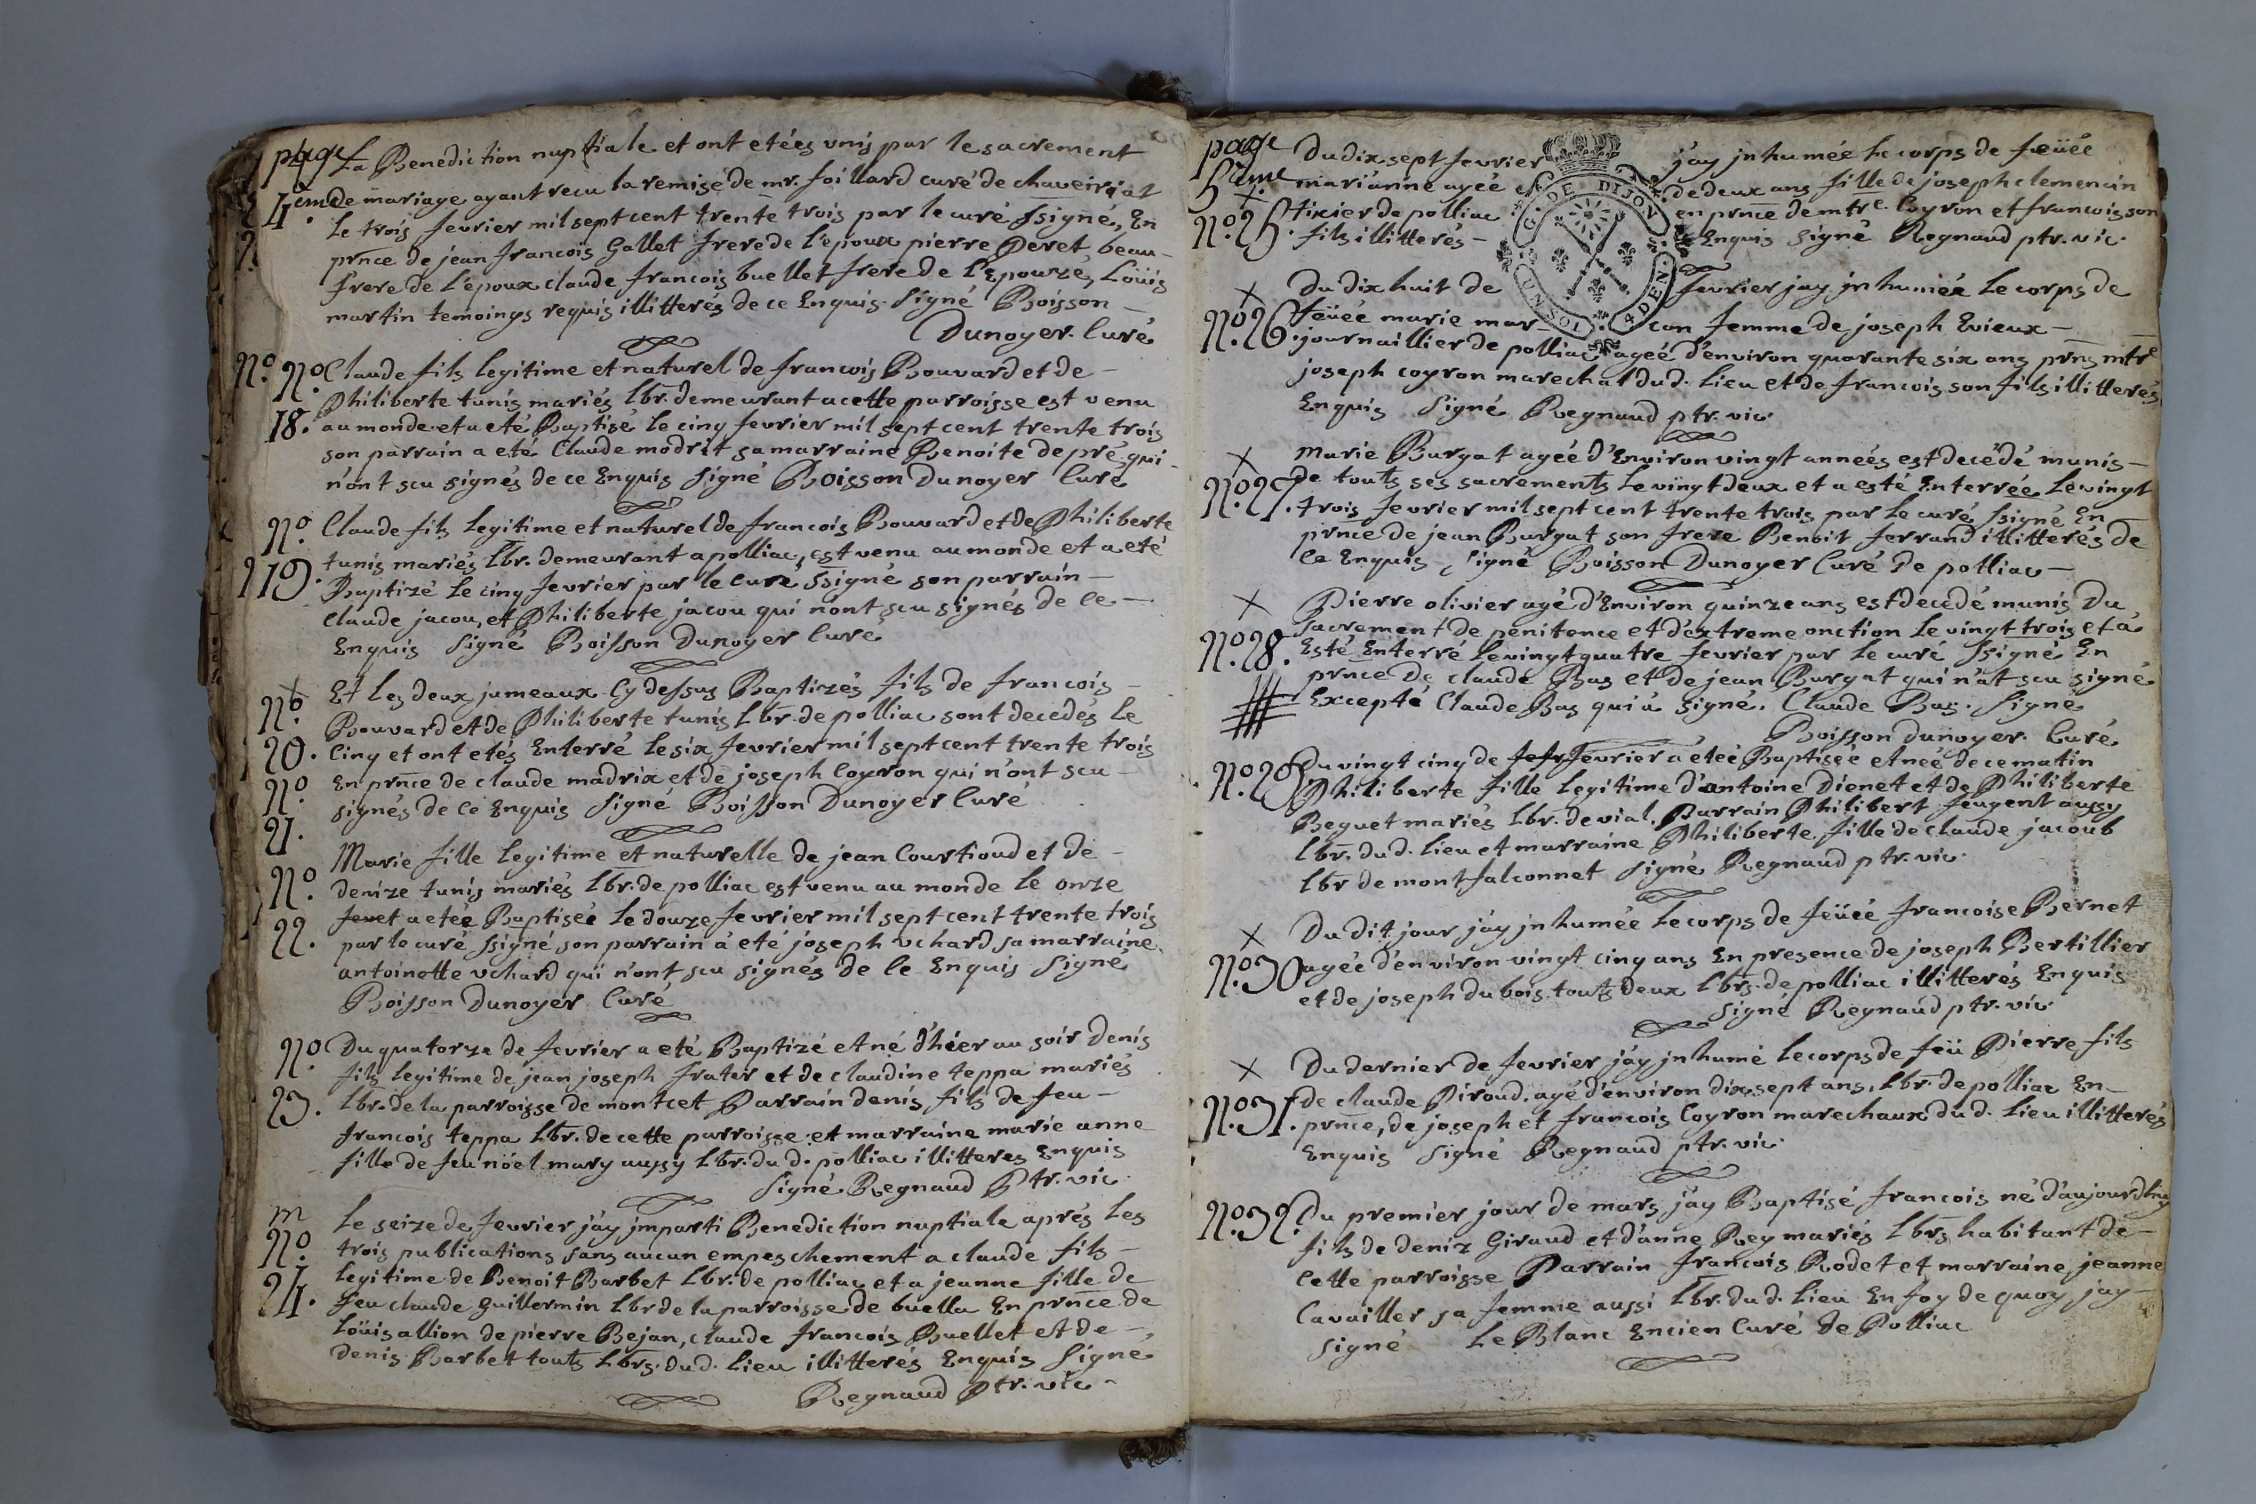 page
4eme
La Benediction nuptiale et ont etées unis par le sacrement
de mariage ayant recu la remise de mr. foillard curé de chaveiriat
le trois fevrier mil sept cent trente trois par le curé ssigné, En
prnce de jean francois Gallet frere de l'époux pierre Peret beau-
frere de l'époux claude francois buellet frere de l'Epouze, Loüis
martin temoings requis illitterés de ce Enquis. signé Boisson
Dunoyer. Curé
No. No
18.
Claude fils legitime et naturel de francois Bouvard et de
Philiberte tunis mariés lbr. demeurant a cette parroisse est venu
au monde et a eté Baptisé le cinq fevrier mil sept cent trente trois
son parrain a eté Claude modrit sa marraine Benoite de pré qui
n'ont scu signés de ce Enquis signé Boisson Dunoyer Curé
No
119.
Claude fils legitime et naturel de francois Bouvard et de Philiberte
tunis mariés lbr. demeurant a polliac, est venu au monde et a eté
Baptizé le cinq fevrier par le curé ssigné son parrain
claude jacou, et Philiberte jacou qui n'ont scu signés de ce
Enquis signé Boisson Dunoyer Curé
No
20.
No
21.
Et les deux jumeaux Cy dessus Baptizés fils de francois
Bouvard et de Philiberte tunis lbr. de polliac sont decedés le
cinq et ont etés Enterré le six fevrier mil sept cent trente trois
En prnce de claude madrix et de joseph Coyron qui n'ont scu
signés de ce Enquis signé Boisson Dunoyer Curé
No.
22.
Marie fille legitime et naturelle de jean Courtioud et de
denize tunis mariés lbr. de polliac est venu au monde le onze
fevet a etée Baptiseé le douze fevrier mil sept cent trente trois
par le curé ssigné son parrain à eté joseph vchard sa marraine
antoinette vchard qui n'ont scu signés de ce Enquis signé
Boisson Dunoyer Curé
No
23.
Du quatorze de fevrier a eté Baptizé et né d'hier au soir Denis
fils legitime de jean joseph frater et de claudine teppa mariés
lbr. de la parroisse de montcet Parrain denis fils de feu
francois teppa lbr. de cette parroisse et marraine marie anne
fille de feu nöel mary aussy lbr. du d. polliac illitteres Enquis
signé Regnaud Ptr. vic
m
No
24.
Le seize de fevrier j'ay jmparti Benediction nuptiale aprés les
trois publications sans aucun empeschement a claude fils
legitime de Benoit Barbet lbr. de polliac et a jeanne fille de
feu claude Guillermin lbr de la parroisse de buella En prnce de
Loüis allion de pierre Bejan, claude francois Buellet et de
denis Barbet touts lbrs. du d. lieu illitterés Enquis signé
Regnaud Ptr. vic
page
5eme
No. 25.
Du dix sept fevrier j'ay jnhumée le corps de feüeé
mari'anne ageé de deux ans fille de joseph clemencin
tixier de polliac en prnce de mtre. Coyron et francois son
fils illitterés Enquis signé Regnaud ptr. vic
G. DE DIJON
UN SOL
4 DEN.
No. 26.
Du dix huit de fevrier jay jnhumée le corps de
feüeé marie mar- con femme de joseph Evieux
journaillier de polliac ageé d'environ quarante six ans prns mtre
joseph coyron marechal du d. lieu et de francois son fils illitterés
Enquis signé Regnaud ptr. vic
No. 27.
Marie Burgat ageé d'Environ vingt anneés est decédé munis
de touts ses sacrements le vingt deux et a esté Enterrée le vingt
trois fevrier mil sept cent trente trois par le curé ssigné En
prnce de jean Burgat son frere Benoit ferrand illitterés de
ce Enquis signé Boisson Dunoyer Curé de polliac
No. 28.
Pierre olivier agé d'Environ quinze ans est decedé munis Du
sacrement de penitence et d'extreme onction le vingt trois et a
Esté Enterré le vingt quatre fevrier par le curé ssigné En
prnce de claude Bas et de jean Burgat qui n'at scu signé
Excepté Claude Bas qui a signé. Claude Bas. Signé
Boisson Dunoyer. Curé
No. 29
Du vingt cinq de fevrier a eteé Baptiseé et neé de ce matin
Philiberte fille legitime d'antoine Dienet et de Philiberte
Beguet mariés lbr. de vial. Parrain Philibert feugent aussy
lbr. du d. lieu et marraine Philiberte fille de claude jacoub
lbr de montfalconnet signé Regnaud ptr. vic
No. 30
Du dit jour j'ay jnhumée le corps de feüeé francoise Bernet
ageé d'environ vingt cinq ans En presence de joseph Bertillier
et de joseph dubois touts deux lbrs. de polliac illitterés Enquis
signé Regnaud ptr. vic
No. 31.
Du dernier de fevrier j'ay jnhumé le corps de feü Pierre fils
de claude Piroud. agé d'environ dix sept ans, lbr. de polliac En
prnce, de joseph et francois Coyron marechaux du d. lieu illitterés
Enquis signé Regnaud ptr. vic
No. 32.
Du premier jour de mars j'ay Baptisé francois né d'aujourdhuy
fils de deniz Giraud et d'anne Rey mariés lbrs habitant de
cette parroisse Parrain francois Rodet et marraine jeanne
Cavailler sa femme aussi lbr. du d. lieu En foy de quoy jay
signé Le Blanc Encien Curé de Polliac